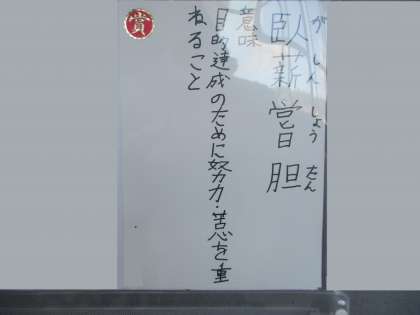 臥薪嘗胆
がしんしょうたん
意味
目的達成のために努力・苦心を重
ねること
賞